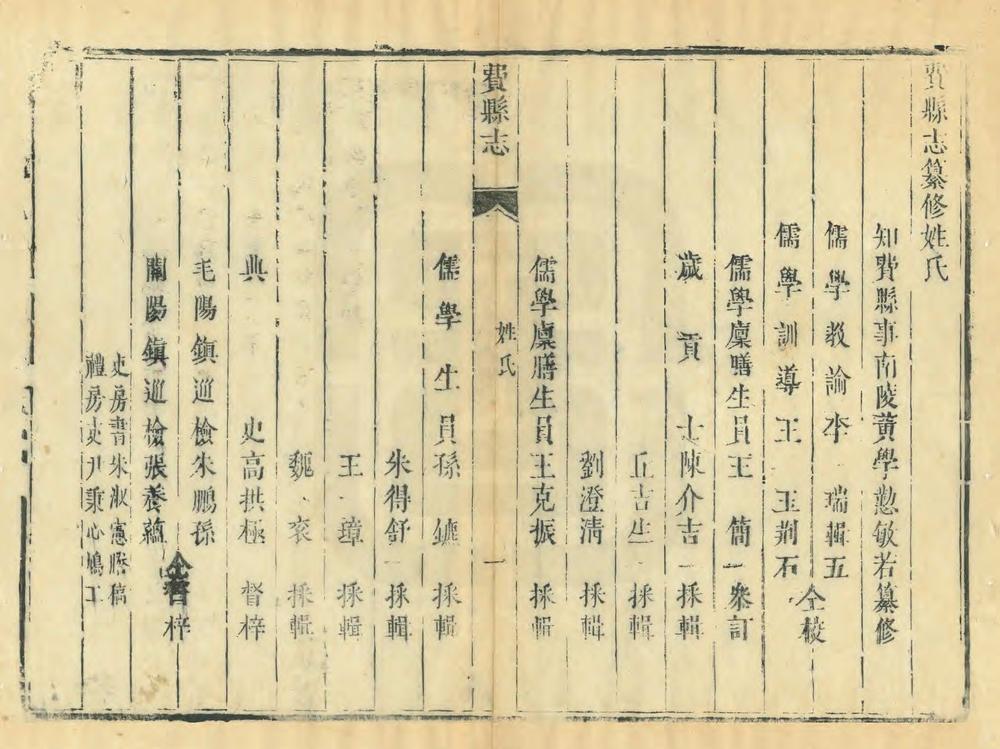 費縣志纂修姓氏
知費縣事南陵黃學懃敏若纂修
儒學教諭李瑞輯五
儒學訓導王玉荆石
仝校
儒學廩膳生員王簡參訂
歲貢士陳介吉採輯
丘吉生採輯
劉澄清採輯
儒學廩膳生員王克振採輯
費縣志
姓氏
一
儒學生員孫鑣採輯
朱得舒採輯
王璋採輯
魏袞採輯
典史高拱極督梓
毛陽鎮巡檢朱鵬孫
關陽鎮巡檢張養蘊
仝督梓
吏房書朱淑憲謄稿
禮房吏尹秉心鳩工